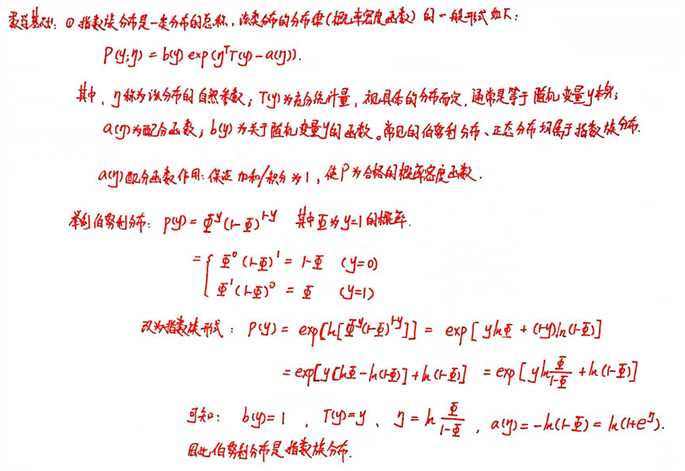 数学基础：① 指数族分布是一类分布的总称，该类分布的分布律(概率密度函数)的一般形式如下：
P(y;η) = b(y) exp(η^T T(y) - a(η)).
其中，η称为该分布的自然参数；T(y)为充分统计量，视具体的分布而定，通常是等于随机变量y本身；
a(η)为配分函数；b(y)为关于随机变量y的函数。常见的伯努利分布、正态分布均属于指数族分布.
a(η)配分函数作用：保证加和/积分为1，使P为合格的概率密度函数.
举例伯努利分布：p(y) = Φ^y (1-Φ)^{1-y} 其中Φ为y=1的概率.
= { Φ^0 (1-Φ)^1 = 1-Φ (y=0)
Φ^1 (1-Φ)^0 = Φ (y=1)
改为指数族形式：P(y) = exp[ln[Φ^y(1-Φ)^{1-y}]] = exp[ylnΦ + (1-y)ln(1-Φ)]
= exp[y[lnΦ - ln(1-Φ)] + ln(1-Φ)] = exp[y ln Φ/(1-Φ) + ln(1-Φ)]
可知：b(y)=1，T(y)=y，η = ln Φ/(1-Φ)，a(η) = -ln(1-Φ) = ln(1+e^η).
因此伯努利分布是指数族分布.